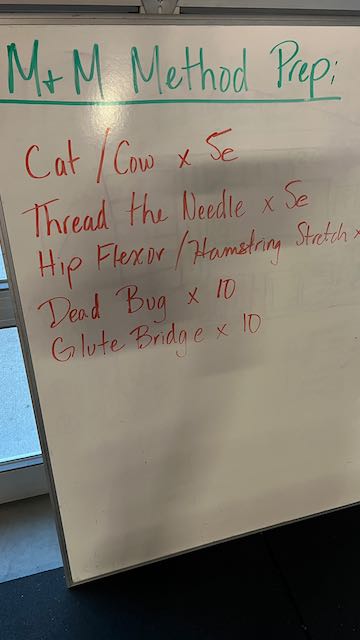 M+M Method Prep:
Cat / Cow x 5e
Thread the Needle x 5e
Hip Flexor / Hamstring Stretch x
Dead Bug x 10
Glute Bridge x 10